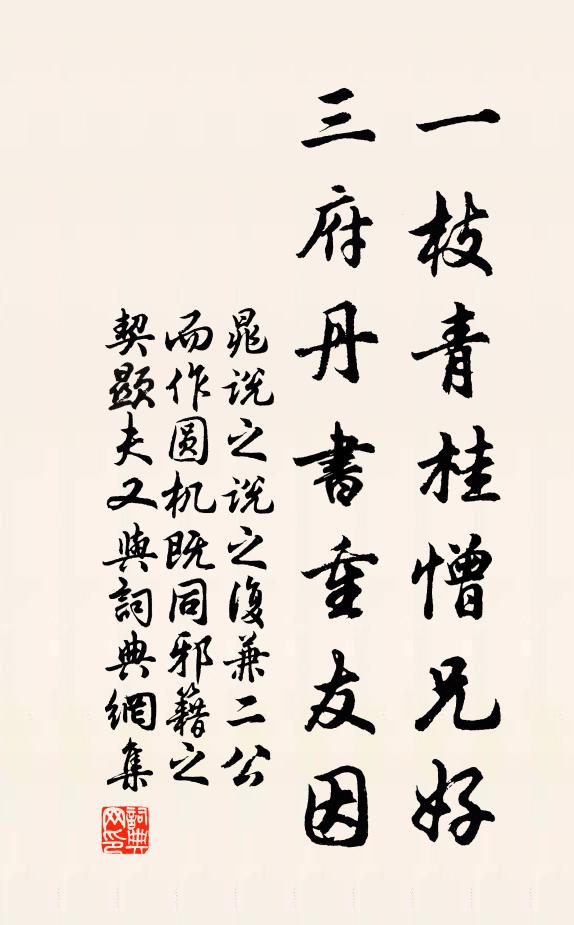 一枝青桂憎兄好
三府丹書重友因
晁說之說之復兼二公
而作圓机既同邪籍之
契顥夫又與詞典網集
詞典